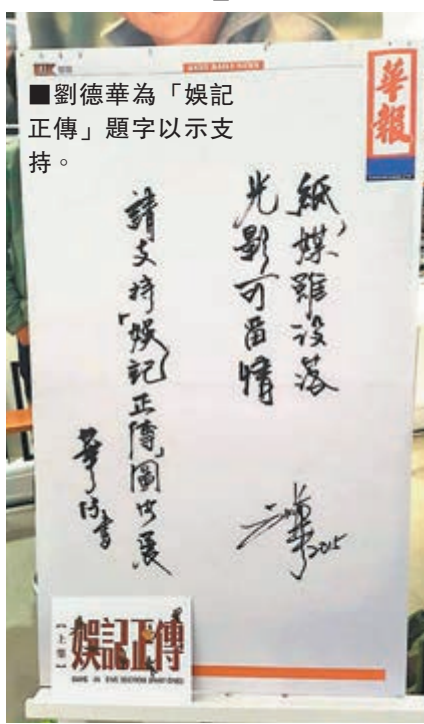 ■劉德華為「娛記
正傳」題字以示支
持。
華報
紙媒雖沒落
光影可留情
2015
請支持「娛記正傳」圖片展
華仔書
【上集】
娛記正傳